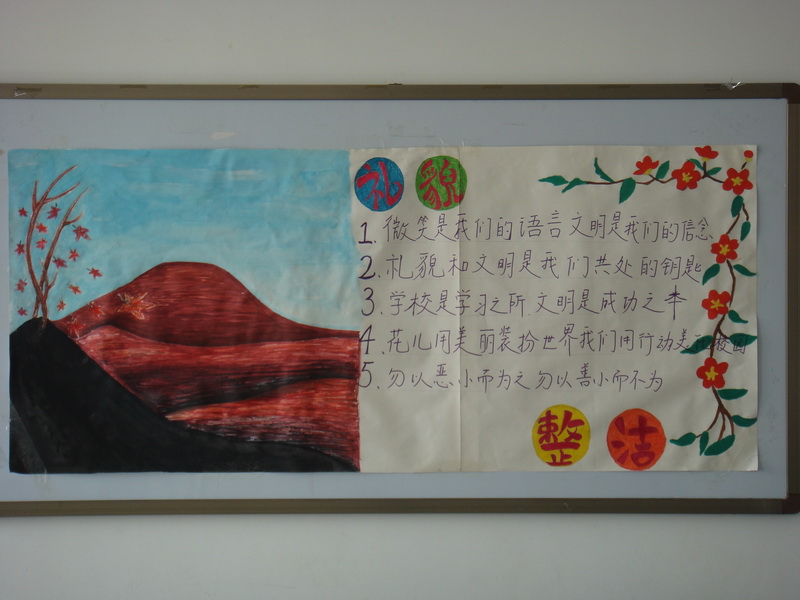 礼貌
1. 微笑是我们的语言 文明是我们的信念
2. 礼貌和文明是我们共处的钥匙
3. 学校是学习之所. 文明是成功之本
4. 花儿用美丽装扮世界 我们用行动美化校园
5. 勿以恶小而为之 勿以善小而不为
整洁